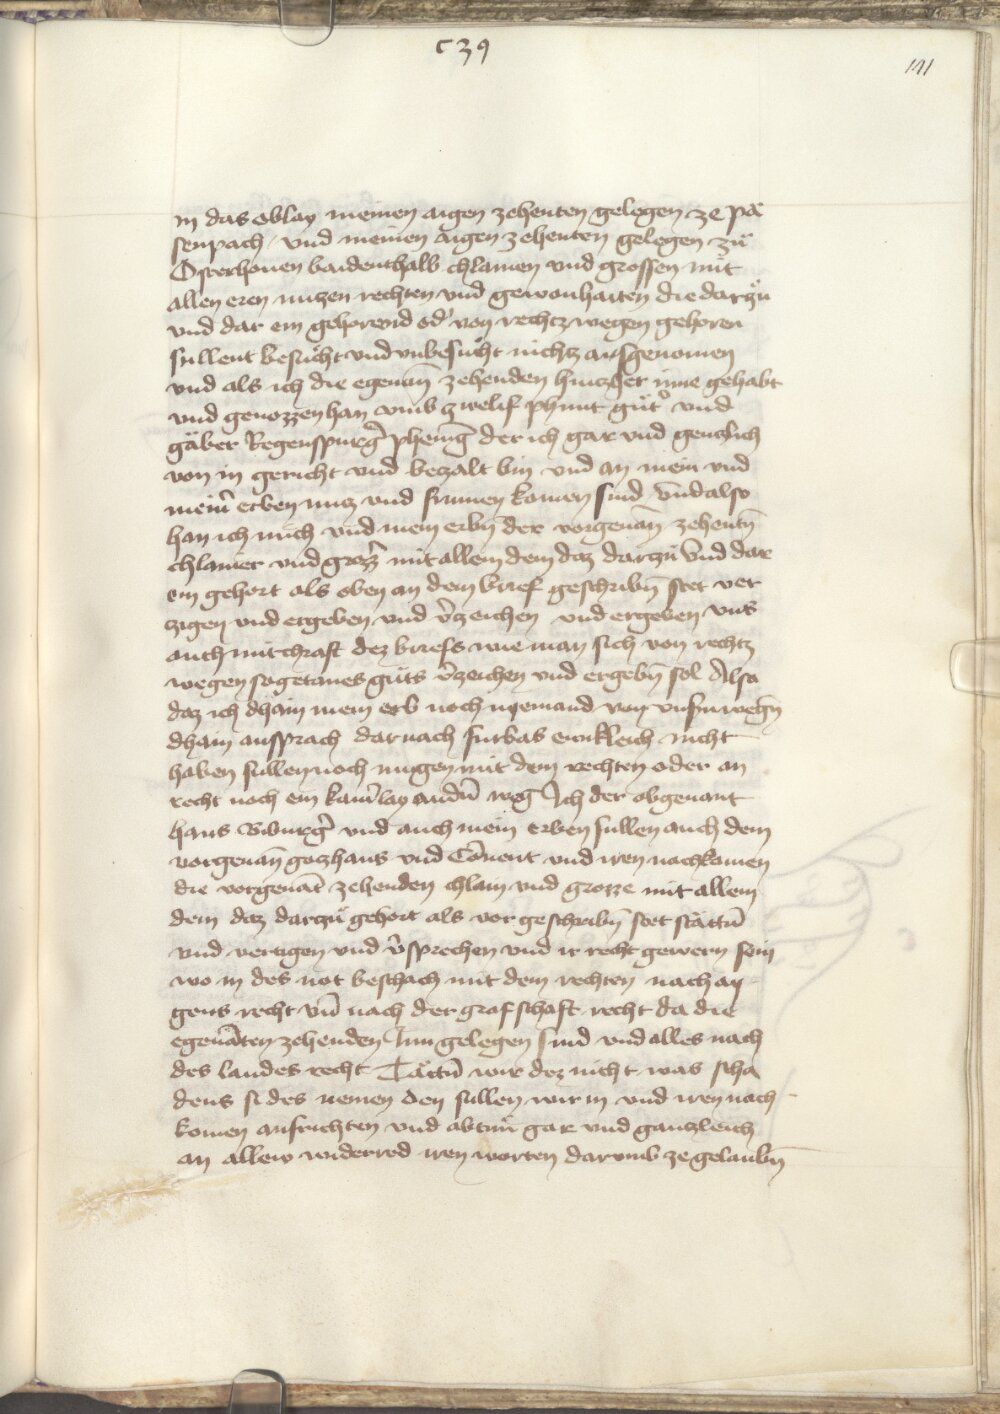 c39
141
in das oblay meinen aigen zehenten gelegen ze pä
senpach / und meinen aigen zehenten gelegen zů
Osterhouen baidenthalb chlainen und grossen mit
allen eren nuczen rechten und gewonhaiten die darzů
und dar ein gehorend od' von rechcz wegen gehoren
sullent besucht und unbesucht nichcz ausgenomen
und als ich die egenan̄ zehenden hinczher inne gehabt
und genozzen han umb zwelif phunt gůt' und
gäber Regenspurg' phenīg der ich gar und genczlich
von in gericht und beczalt bin und an mein und
mein' erben nucz und frumen komen sind Und also
han ich mich und mein erbn̄ der vorgenan̄ zehentn̄
chlainer und groz' mit allem dem daz darzů und dar
ein gehort als oben an dem brief geschribn̄ stet ver
zigen und ergeben und v'zeichen und ergeben uns
auch mit chraft dez briefs wie man sich von rechcz
wegen sogetanes gůts v'zeichen und ergebn̄ sol Also
daz ich dhain mein erb noch nyemand von unsern wegn̄
dhain ansprach darnach furbas ewikleich nicht
haben sullen noch mugen mit dem rechten oder an
recht noch ein kain'lay and'n weg Ich der obgenant
hans Biburg' und auch mein erben sullen auch dem
vorgenan̄ goczhaus und Cōnent und iren nachkomen
die vorgenāt zehenden chlain und grozze mit allem
dem daz darzů gehort als vor geschribn̄ stet stättn̄
und vertigen und v'sprechen und ir recht gewern sein
wo in des not beschach mit dem rechten nach ay
gens recht un̄ nach der grafschaft recht da die
egenāten zehenden Inn gelegen sind und alles nach
des landes recht Tättn̄ wir dez nicht was scha
dens si des nemen den sullen wir in und iren nach
komen ausrichten und abtun̄ gar und ganczleich
an allew widerred iren worten darumb ze gelaubn̄